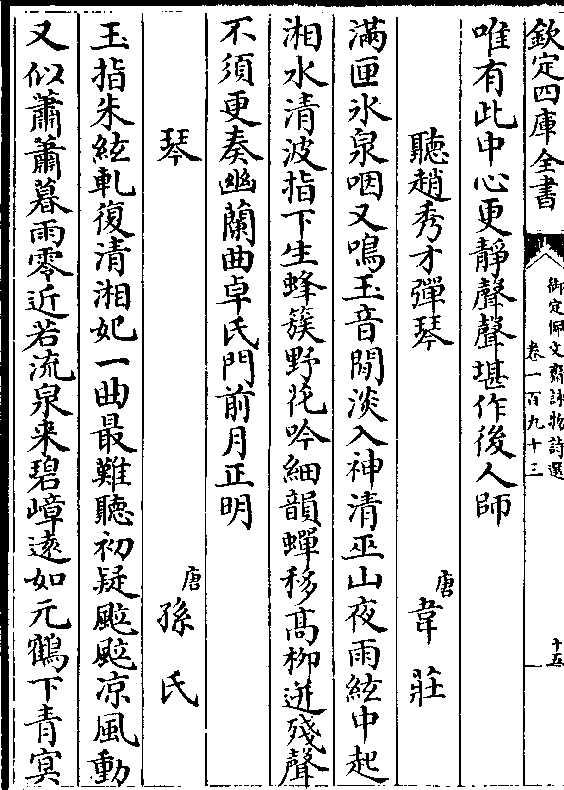 欽定四庫全書
御定佩文齋詠物詩選
卷一百九十三
十五
唯有此中心更靜聲聲堪作後人師
聽趙秀才彈琴
唐
韋莊
滿匣氷泉咽又鳴玉音閒淡入神清巫山夜雨絃中起
湘水清波指下生蜂簇野花吟細韻蟬移髙栁迸殘聲
不須更奏幽蘭曲卓氏門前月正明
琴
唐
孫氏
玉指朱絃軋復清湘妃一曲最難聽初疑颯颯凉風動
又似蕭蕭暮雨零近若流泉来碧嶂逺如元鶴下青㝠